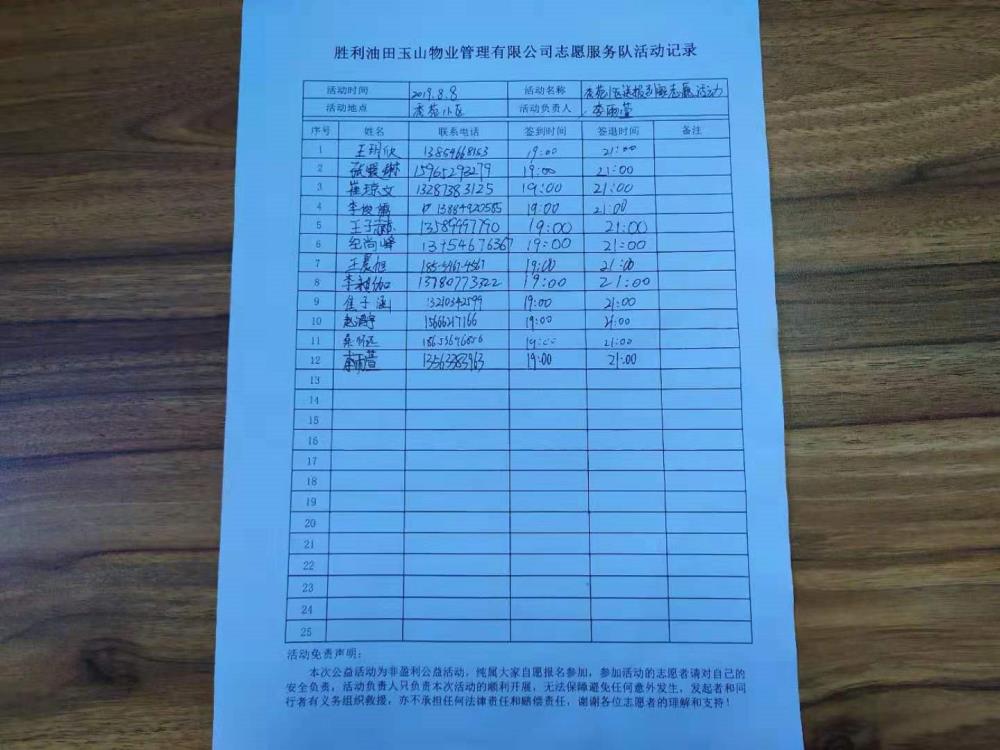 胜利油田玉山物业管理有限公司志愿服务队活动记录
活动时间 2019.8.8 活动名称 志愿活动
活动地点 小区 活动负责人 李雨萱
序号 姓名 联系电话 签到时间 签退时间 备注
1 王玥欣 19:00 21:00
2 15965293279 19:00 21:00
3 崔琼文 13287383125 19:00 21:00
4 李俊 13884920585 19:00 21:00
5 王子 13589997790 19:00 21:00
6 纪尚峰 19:00 21:00
7 王晨旭 19:00 21:00
8 李 13780773322 19:00 21:00
9 崔子涵 13210342599 19:00 21:00
10 15666217166 19:00 21:00
11 19:00 21:00
12 李雨萱 13563383963 19:00 21:00
13
14
15
16
17
18
19
20
21
22
23
24
25
活动免责声明：
本次公益活动为非盈利公益活动，纯属大家自愿报名参加，参加活动的志愿者请对自己的
安全负责，活动负责人只负责本次活动的顺利开展，无法保障避免任何意外发生，发起者和同
行者有义务组织救援，亦不承担任何法律责任和赔偿责任，谢谢各位志愿者的理解和支持！